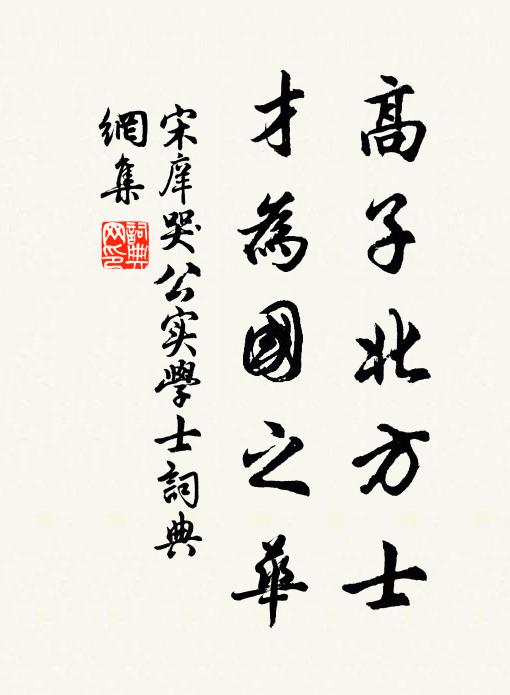 高子北方士
才為國之華
宋庠哭公实學士詞典
網集
詞典
网印